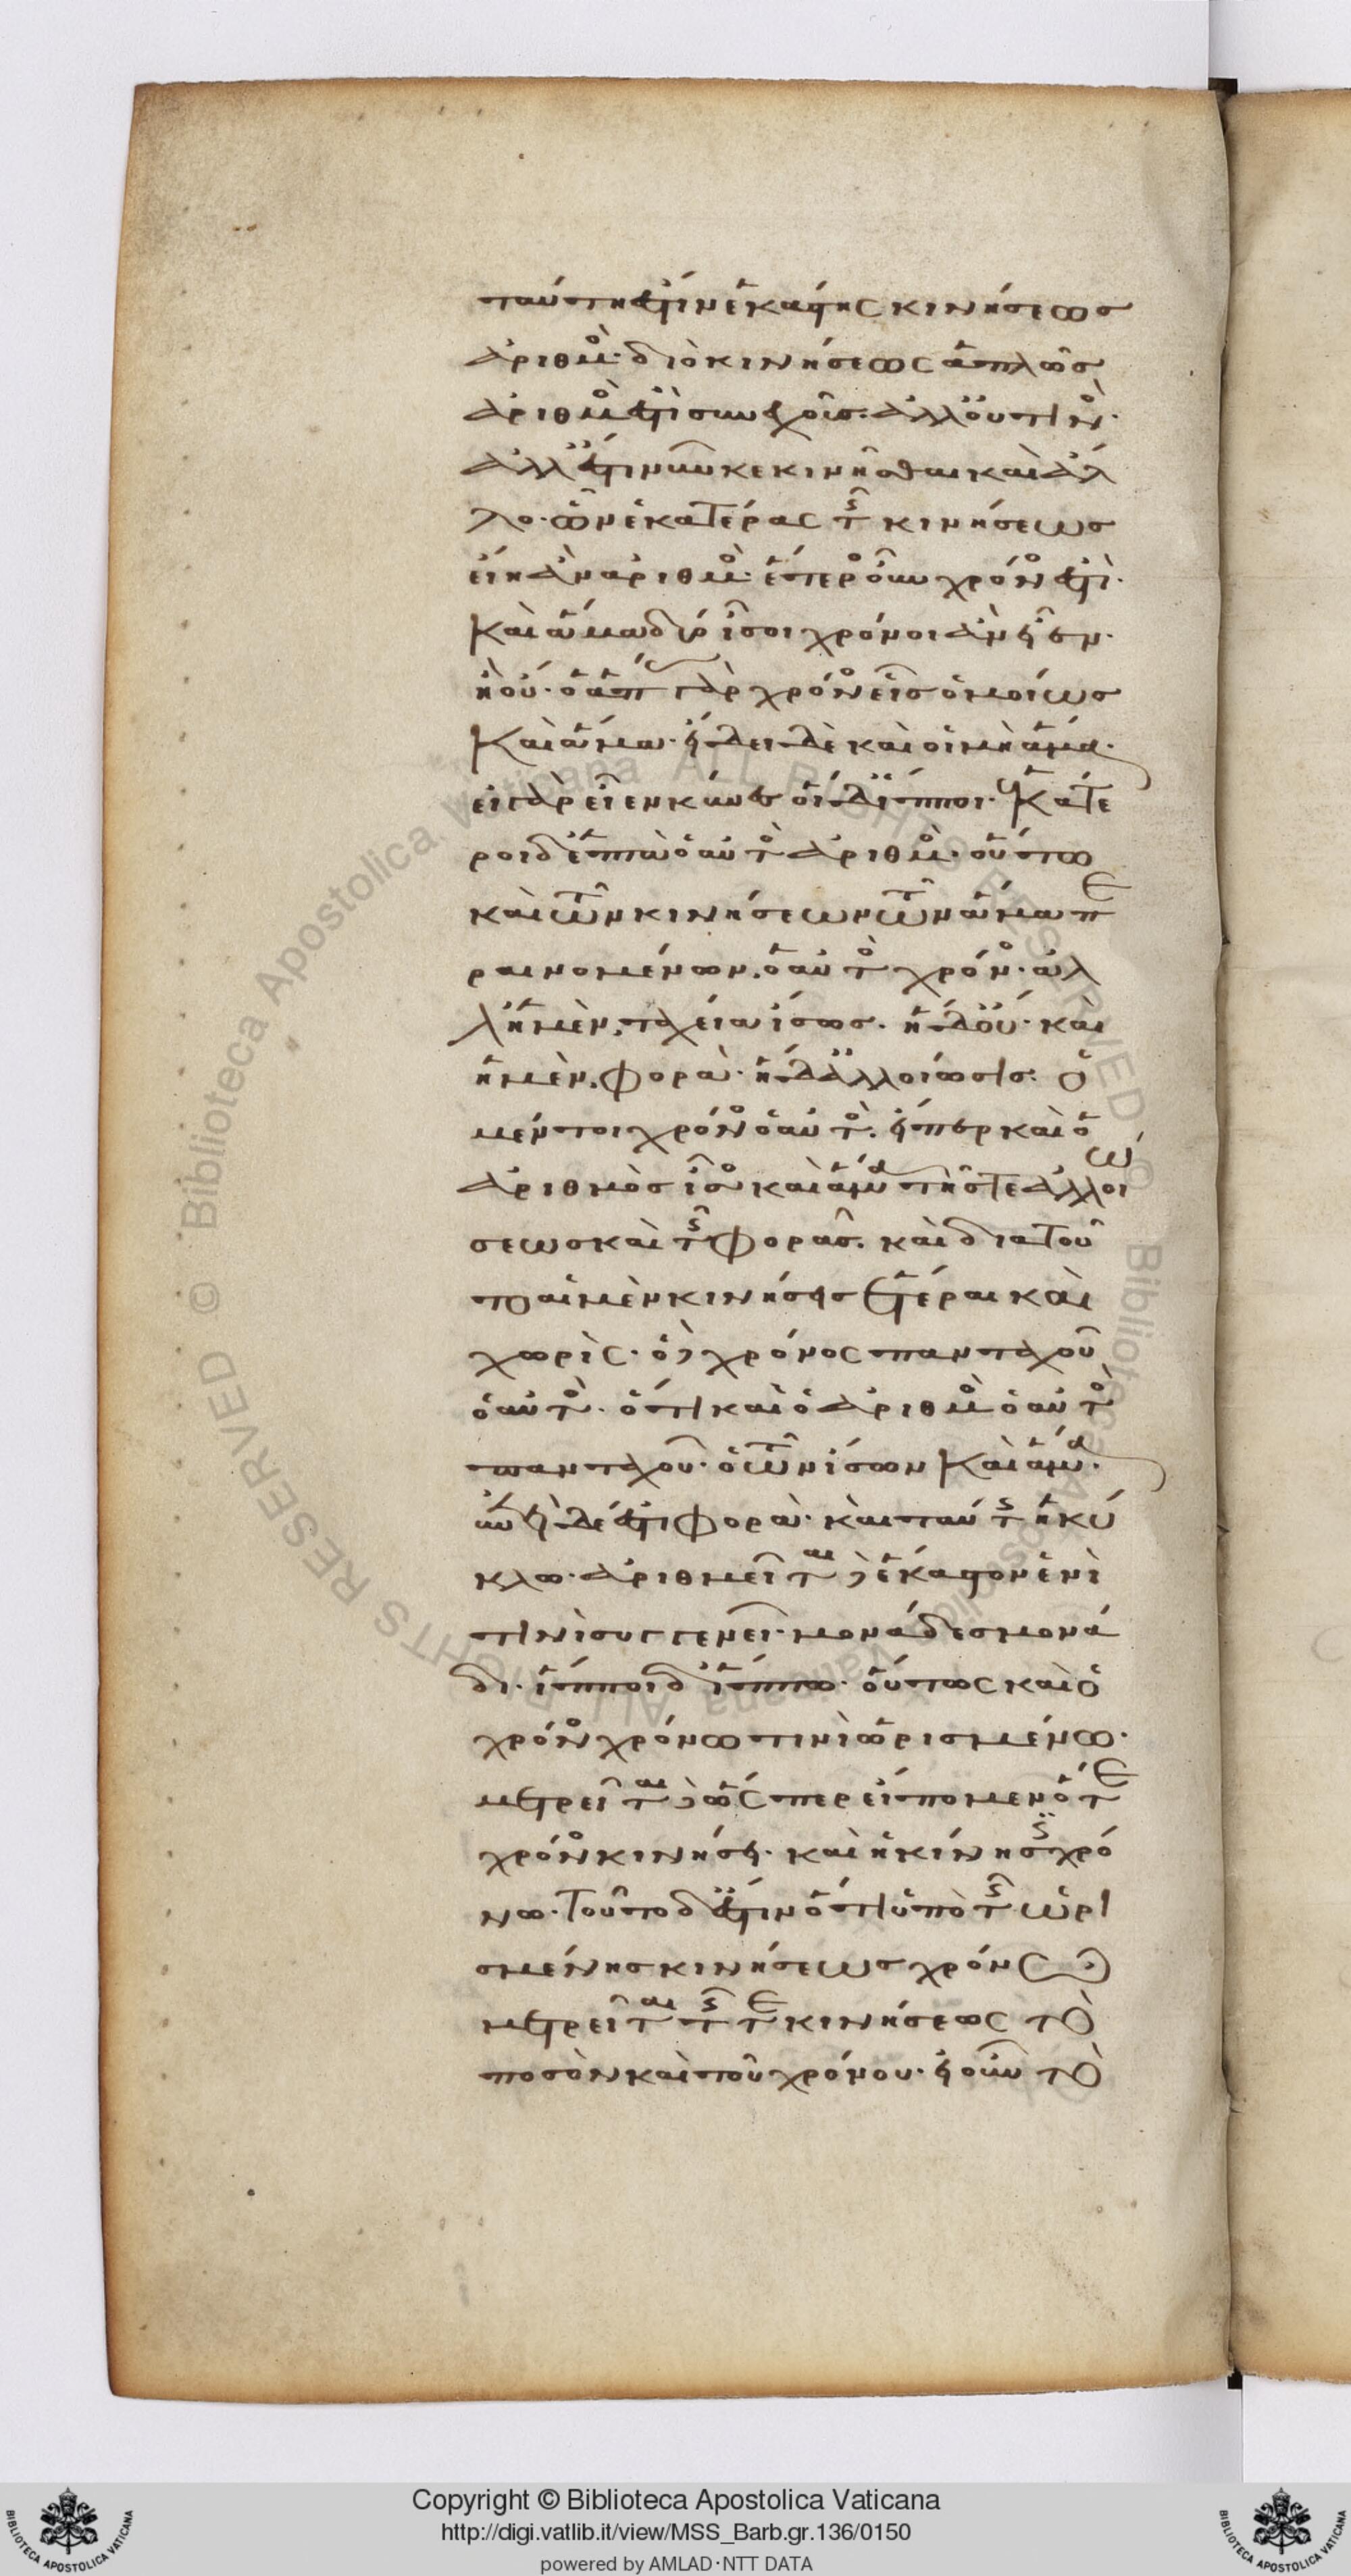 ταύτη ἐστὶν ἑκάστης κινήσεως
ἀριθμός· διὸ κινήσεως ἁπλῶς
ἀριθμός ἐστι συνεχοῦς· ἀλλ' οὔ τινός·
ἀλλ' ἔστι νῦν κεκινῆσθαι καὶ ἄλ
λο· ὧν ἑκατέρας τῆς κινήσεως
εἴη ἂν ἀριθμός· ἕτερος οὖν χρόνος ἐστὶ·
Καὶ ἅμα δύο ἴσοι χρόνοι ἂν εἶεν·
ἢ οὔ· ὁ ἅπας γὰρ χρόνος εἷς ὁμοίως
Καὶ ἅμα· εἴδει δὲ καὶ οἱ μὴ ἅμα·
εἰ γὰρ εἶεν κύνες οἱ δ' ἵπποι· ἑκάτε
ροι δ' ἑπτὰ ὁ αὐτὸς ἀριθμός· οὕτω
καὶ τῶν κινήσεων τῶν ἅμα πε
ραινομένων· ὁ αὐτὸς χρόνος· ἀλ
λ' ἡ μὲν, ταχεία ἴσως· ἡ δ' οὔ· καὶ
ἡ μὲν, φορὰ· ἡ δ' ἀλλοίωσις· ὁ
μέντοι χρόνος ὁ αὐτός· εἴπερ καὶ ὁ
ἀριθμὸς ἴσος καὶ ἅμα τῆς τε ἀλλοιώ
σεως καὶ τῆς φορᾶς· καὶ διατοῦ
το αἱ μὲν κινήσεις ἕτεραι καὶ
χωρὶς· ὁ δὲ χρόνος πανταχοῦ
ὁ αὐτὸς· ὅτι καὶ ὁ ἀριθμὸς ὁ αὐτὸς
πανταχοῦ· ὁ τῶν ἴσων Καὶ ἅμα·
ἐπεὶ δέ ἐστι φορὰ· καὶ ταύτης ἡ κύ
κλω· ἀριθμεῖται δὲ ἕκαστον ἑνὶ
τινὶ συγγενεῖ· μονάδες μονά
δι· ἵπποι δ' ἵππω· οὕτως καὶ ὁ
χρόνος χρόνω τινὶ ὡρισμένω·
μετρεῖται δὲ ὥσπερ εἴπομεν ὅτε
χρόνος κινήσει· καὶ ἡ κίνησις χρό
νω· τοῦτο δ' ἐστὶν ὅτι ὑπὸ τῆς ὡρι
σμένης κινήσεως χρόνω
μετρεῖται τῆς τε κινήσεως τὸ
ποσὸν καὶ τοῦ χρόνου· εἰ οὖν τὸ
Copyright © Biblioteca Apostolica Vaticana
http://digi.vatlib.it/view/MSS_Barb.gr.136/0150
powered by AMLAD·NTT DATA